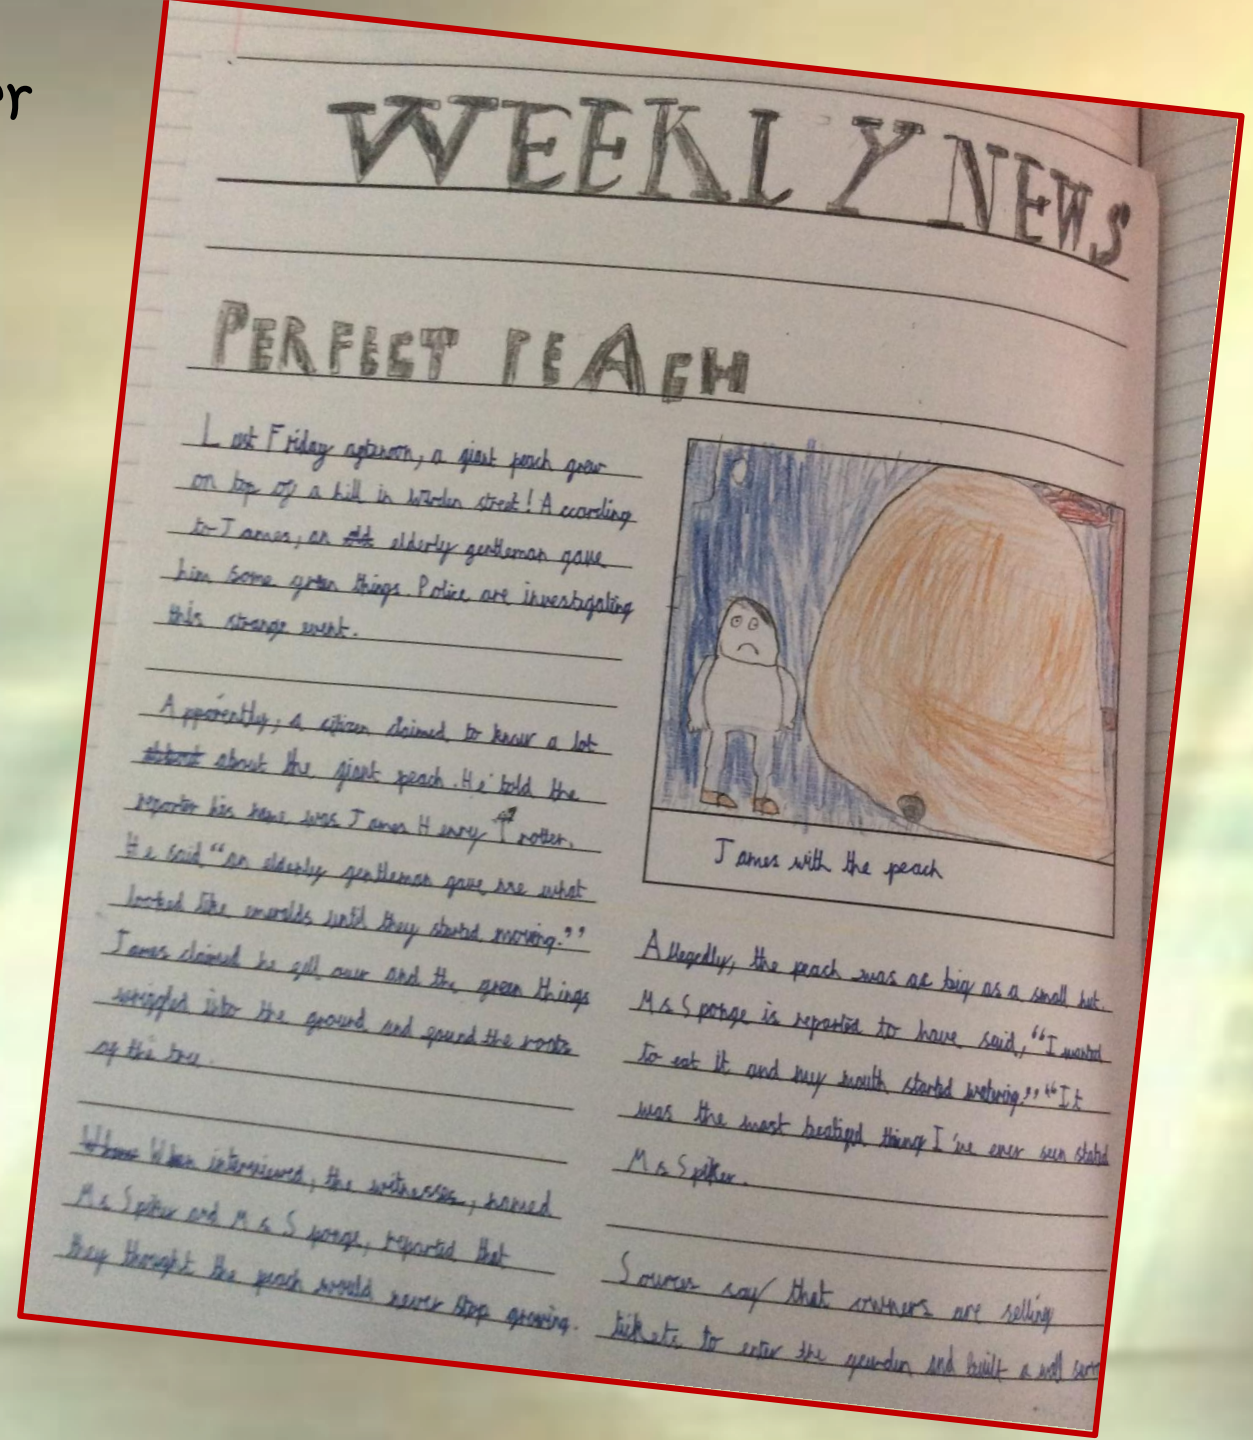 er
WEEKLY NEWS
PERFECT PEACH
Last Friday afternoon, a giant peach grew
on top of a hill in street! According
to James, an old elderly gentleman gave
him some green things. Police are investigating
this strange event.
Apparently, a citizen claimed to know a lot
about the giant peach. He told the
reporter his name was James Henry Trotter.
He said "an elderly gentleman gave me what
looked like emeralds until they started moving."
James claimed he fell over and the green things
wriggled into the ground and found the roots
of the tree.
When interviewed, the witnesses, named
Ms Spiker and Ms Sponge, reported that
they thought the peach would never stop growing.
James with the peach
Allegedly, the peach was as big as a small hut.
Ms Sponge is reported to have said, "I wanted
to eat it and my mouth started watering." "It
was the most thing I've ever seen stated
Ms Spiker.
Sources say that owners are selling
tickets to enter the and built a wall